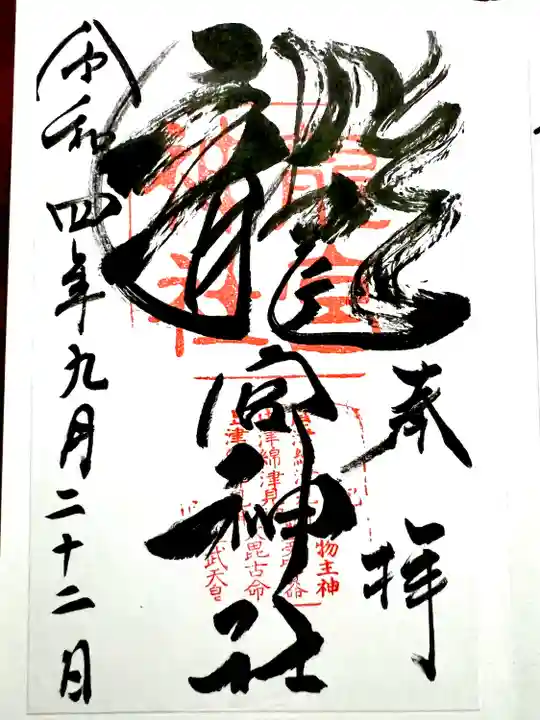 奉拝
龍宮神社
令和四年九月二十二月
龍宮
神社
物主神
毘古命
武天皇